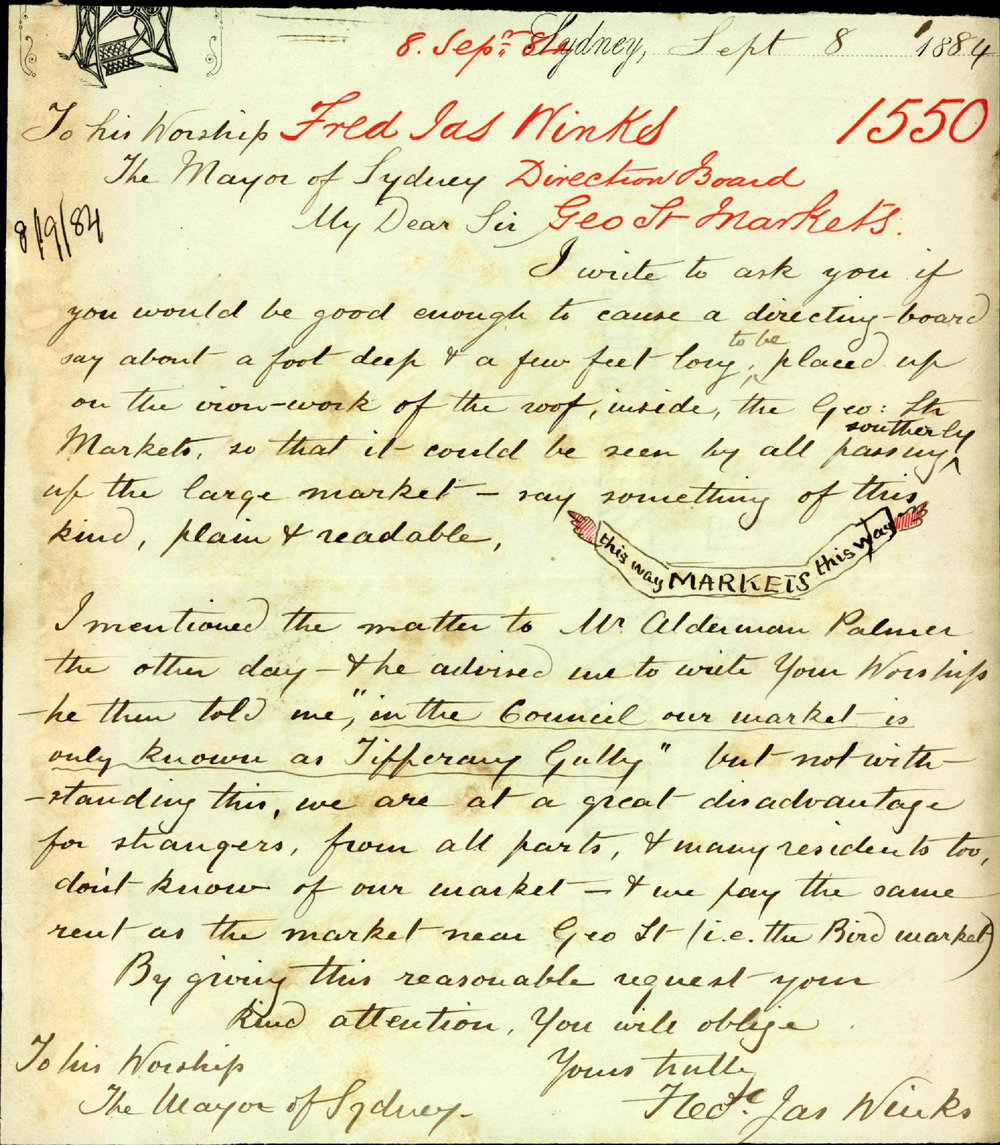 8. Sepr. 84 Sydney, Sept 8 1884
To his Worship Fred Jas Winks 1550
The Mayor of Sydney Direction Board
My Dear Sir Geo St Markets.
8/9/84
I write to ask you if
you would be good enough to cause a directing-board
say about a foot deep & a few feet long, to be placed up
on the iron-work of the roof, inside, the Geo: Str
Markets, so that it could be seen by all passing southerly
up the large market - say something of this
kind, plain & readable,
this way MARKETS this way
I mentioned the matter to Mr. Alderman Palmer
the other day - & he advised me to write Your Worship
- he then told me, "in the Council our market is
only known as Tipperary Gully" but not with-
-standing this, we are at a great disadvantage
for strangers, from all parts, & many residents too,
don't know of our market - & we pay the same
rent as the market near Geo St (i.e. the Bird market)
By giving this reasonable request your
kind attention, You will oblige
To his Worship Yours truly
The Mayor of Sydney- Fredc. Jas Winks